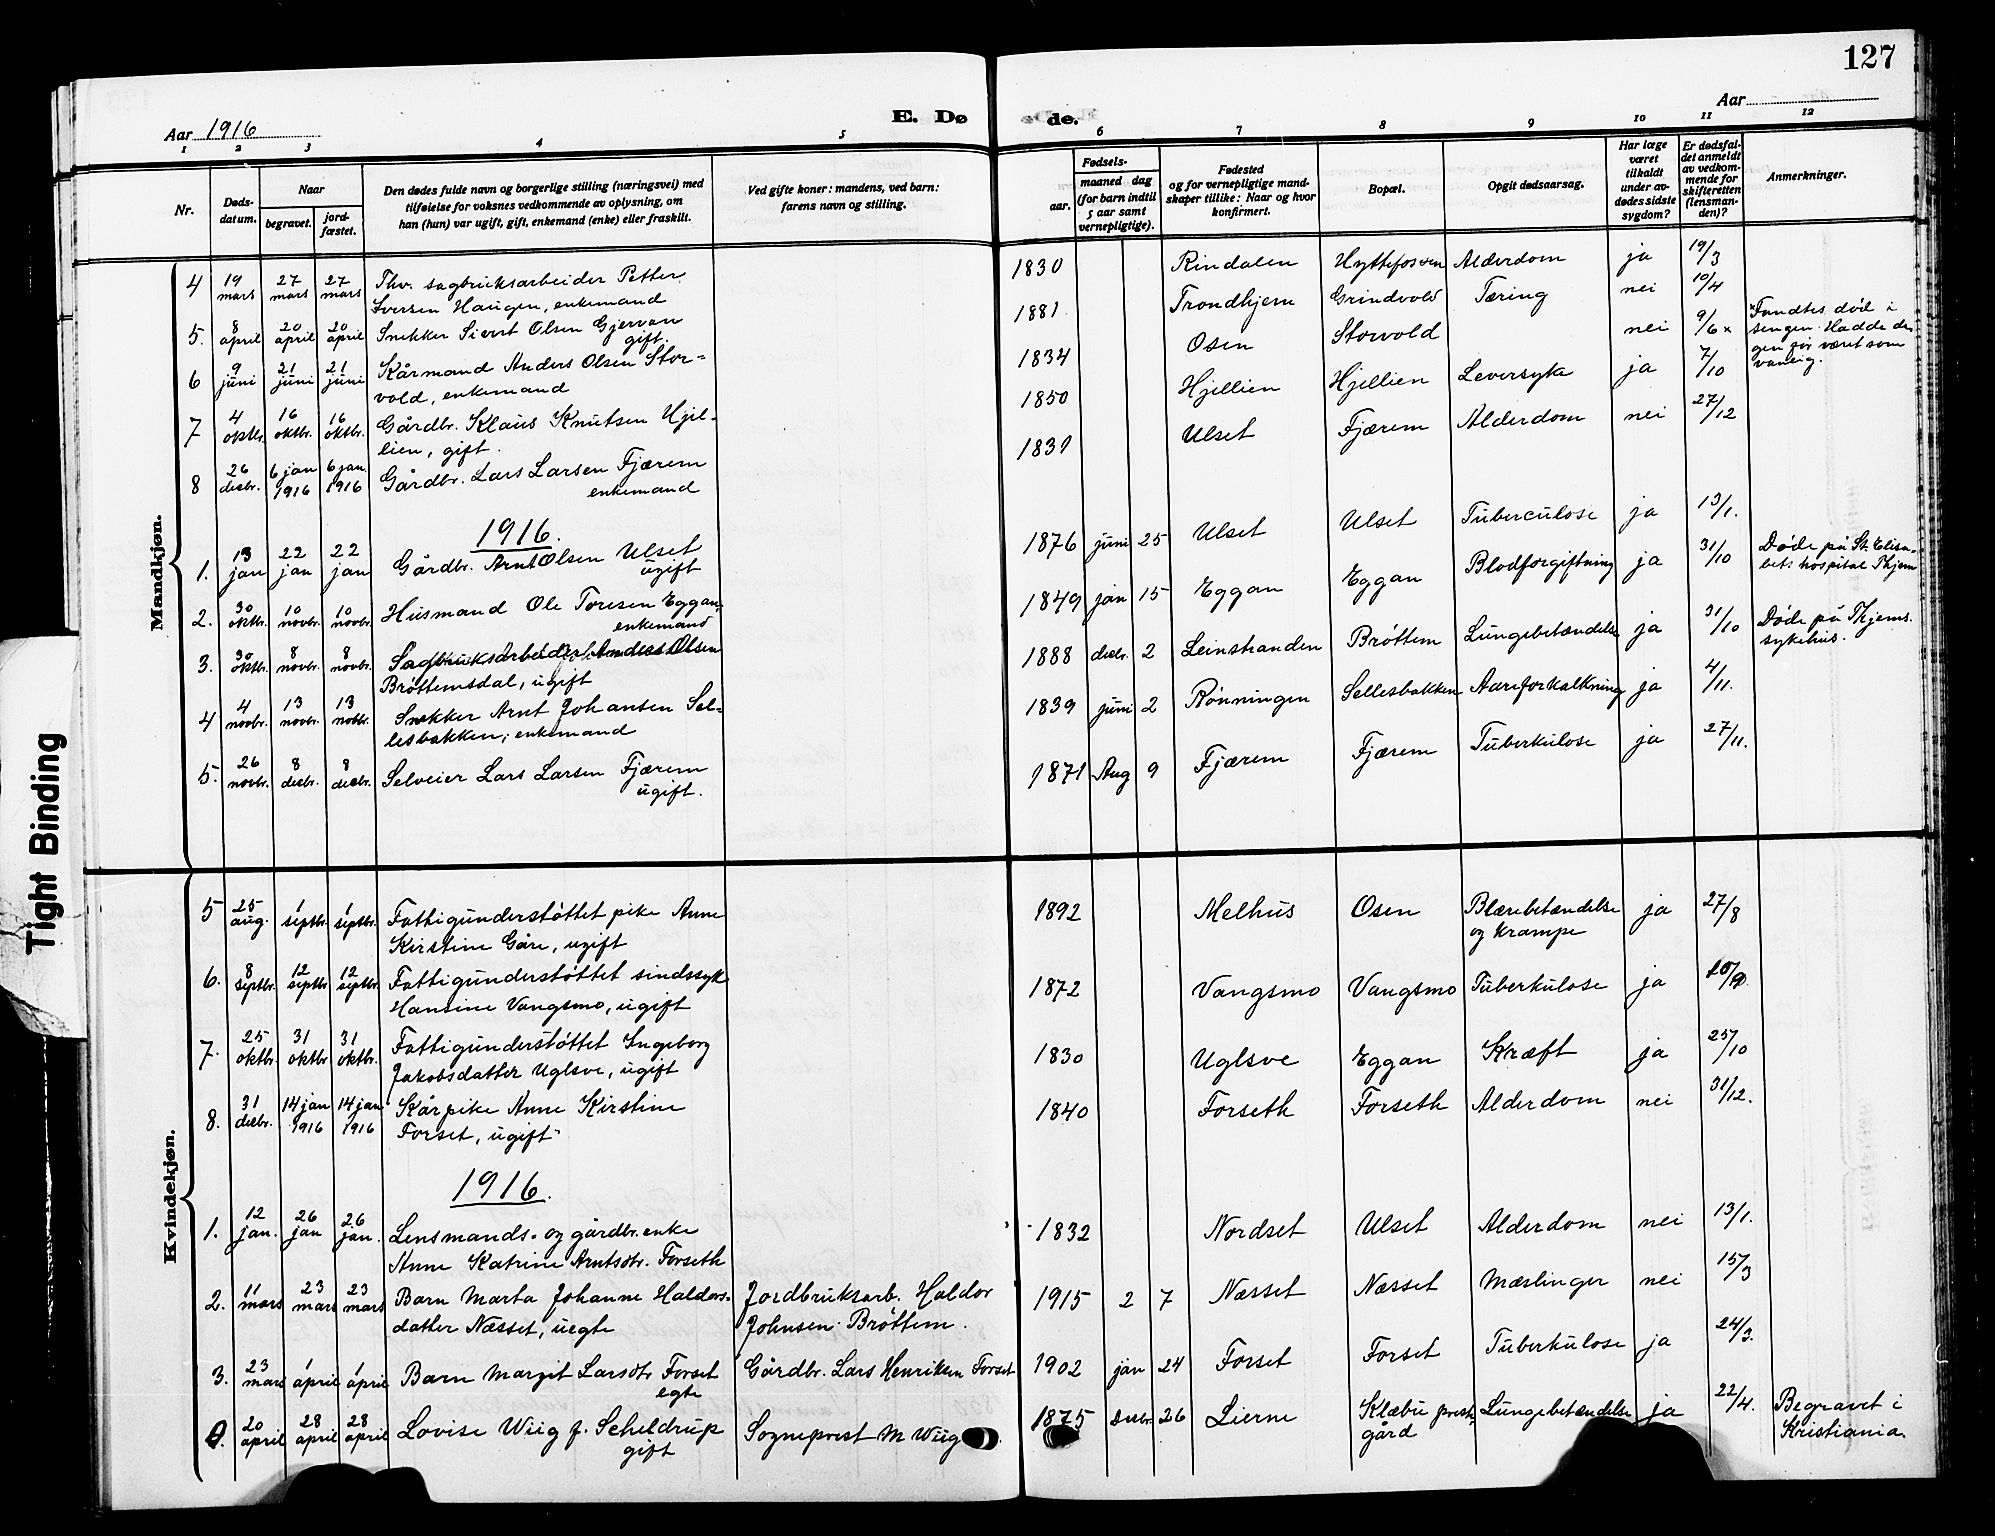 127
E. Dø de.
Aar 1916
Aar
1 2 3 4 5 6 7 8 9 10 11 12
Nr.
Døds-
datum.
Naar
begravet.
jord-
fæstet.
Den dødes fulde navn og borgerlige stilling (næringsvei) med
tilføielse for voksnes vedkommende av oplysning, om
han (hun) var ugift, gift, enkemand (enke) eller fraskilt.
Ved gifte koner: mandens, ved barn:
farens navn og stilling.
Fødsels-
aar.
maaned dag
(for barn indtil
5 aar samt
vernepligtige).
Fødested
og for vernepligtige mand-
skaper tillike: Naar og hvor
konfirmert.
Bopæl.
Opgit dødsaarsag.
Har læge
været
tilkaldt
under av-
dødes sidste
sygdom?
Er dødsfal-
det anmeldt
av vedkom-
mende for
skifteretten
(lensman-
den)?
Anmerkninger.
Mandkjøn.
4 19 mars 27 mars 27 mars Fhv. sagbruksarbeider Petter
Iversen Haugen, enkemand
1830 Rindalen Hyttefossen Alderdom ja 19/3
5. 8 april 20 april 20 april Snekker Sivert Olsen Gjervan
gift.
1881 Trondhjem Grindvold Tæring nei 10/4
6 9 juni 21 juni 21 juni Kårmand Anders Olsen Stor-
vold, enkemand
1834 Osen Storvold nei 9/6 x
x Fandtes død i
sengen. Hadde da-
gen før været som
vanlig.
7 4 oktbr. 16 oktbr. 16 oktbr. Gårdbr. Klaus Knutsen Hjil-
lien, gift.
1850 Hjellien Hjellien Leversyke ja 7/10
8 26 decbr. 6 jan 1916 6 jan. 1916 Gårdbr. Lars Larsen Fjærem
enkemand
1839 Ulset Fjærem Alderdom nei 27/12
1916.
1. 13 jan 22 jan 22 jan Gårdbr. Arnt Olsen Ulset
ugift
1876 juni 25 Ulset Ulset Tuberculose ja 13/1.
2. 30 oktbr. 10 novbr. 10 novbr. Husmand Ole Toresen Eggan,
enkemand
1849 jan 15 Eggan Eggan Blodforgiftning ja 31/10
Døde på St. Elisa-
bets hospital Thjem
3. 30 oktbr. 8 novbr. 8 novbr. Sagbruksarbeider Anders Olsen
Brøttemsdal, ugift
1888 decbr. 2 Leinstranden Brøttem Lungebetændelse ja 31/10
Døde på Thjems
sykehus.
4 4 novbr. 13 novbr. 13 novbr. Snekker Arnt Johansen Sel-
lesbakken, enkemand
1839 juni 2 Rønningen Sellesbakken Aareforkalkning ja 4/11.
5. 26 novbr. 8 decbr. 8 decbr. Selveier Lars Larsen Fjærem
ugift.
1871 Aug 9 Fjærem Fjærem Tuberkulose ja 27/11.
Kvindekjøn.
5 25 aug. 1 septbr. 1 septbr. Fattigunderstøttet pike Anne
Kirstine Gåre, ugift
1892 Melhus Osen Blærebetændelse
og krampe ja 27/8
6. 8 septbr. 12 septbr 12 septbr. Fattigunderstøttet sindssyk
Hansine Vangsmo, ugift
1872 Vangsmo Vangsmo Tuberkulose ja
7. 25 oktbr. 31 oktbr 31 oktbr. Fattigunderstøttet Ingeborg
Jakobsdatter Uglsve, ugift
1830 Uglsve Eggan Kræft ja 25/10
8. 31 decbr. 14 jan 1916 14 jan 1916 Kårpike Anne Kirstine
Forset, ugift
1840 Forseth Forseth Alderdom nei 31/12.
1916.
1. 12 jan. 26 jan 26 jan. Lensmands- og gårdbr. enke
Anne Katrine Arntsdtr. Forseth
1832 Nordset Ulset Alderdom nei 13/1.
2. 11 mars 23 mars 23 mars Barn Marta Johanne Haldors-
datter Næsset, uegte
Jordbruksarb. Haldor
Johnsen Brøttem.
1915 2 7 Næsset Næsset Mæslinger nei 15/3
3. 23 mars 1 april 1 april Barn Margit Larsdtr Forset
egte
Gårdbr. Lars Henriksen Forset
1902 jan 24 Forset Forset Tuberkulose ja 24/3.
20 april 28 april 28 april Lovise Wiig f. Scheldrup
gift
Sogneprest M Wiig
1875 Decbr. 26 Lierne Klæbu prest-
gård Lungebetændelse ja 22/4.
Begravet i
Kristiania.
Tight Binding